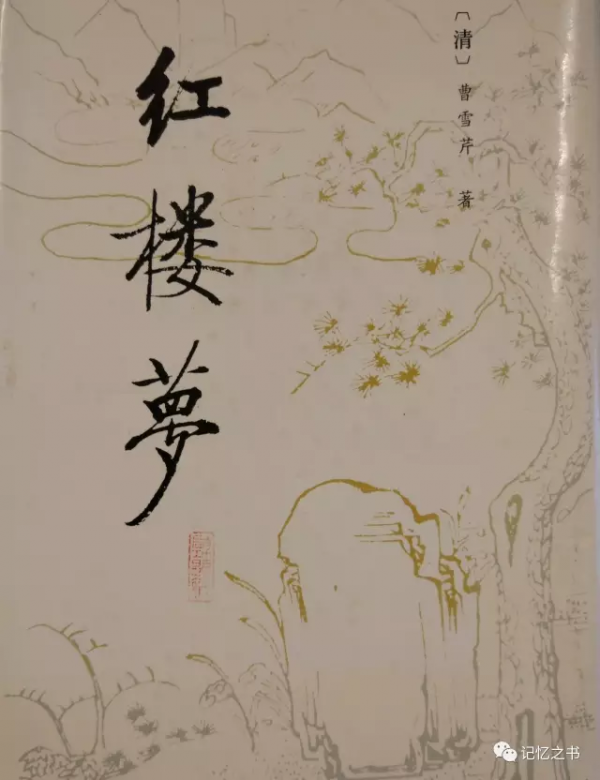 〔清〕曹雪芹 著
红楼夢
记忆之书